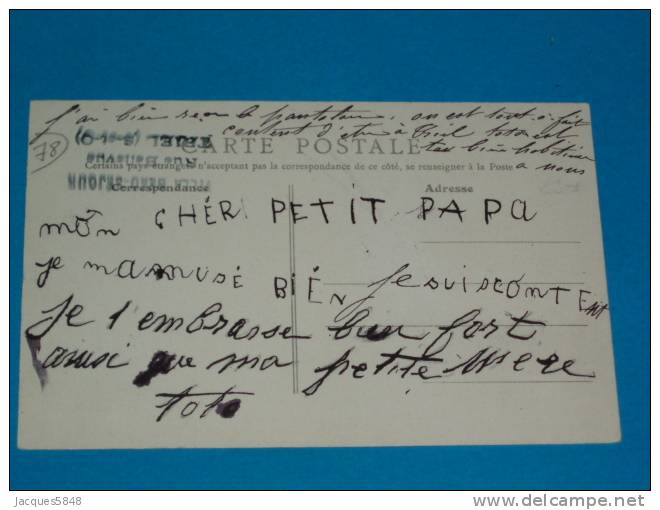 j'ai bien reçu le pantalon, on est tout à fait
content d'être à toto est
très bien
à nous
78
CARTE POSTALE
Certains pays étrangers n'acceptant pas la correspondance de ce côté, se renseigner à la Poste
Correspondance
Adresse
mon CHÉRI PETIT PAPA
je mamusé BIÉN je suisconTEnt
je t embrasse bien fort
ainsi que ma petite mere
toto
Jacques5848
delcampe.net